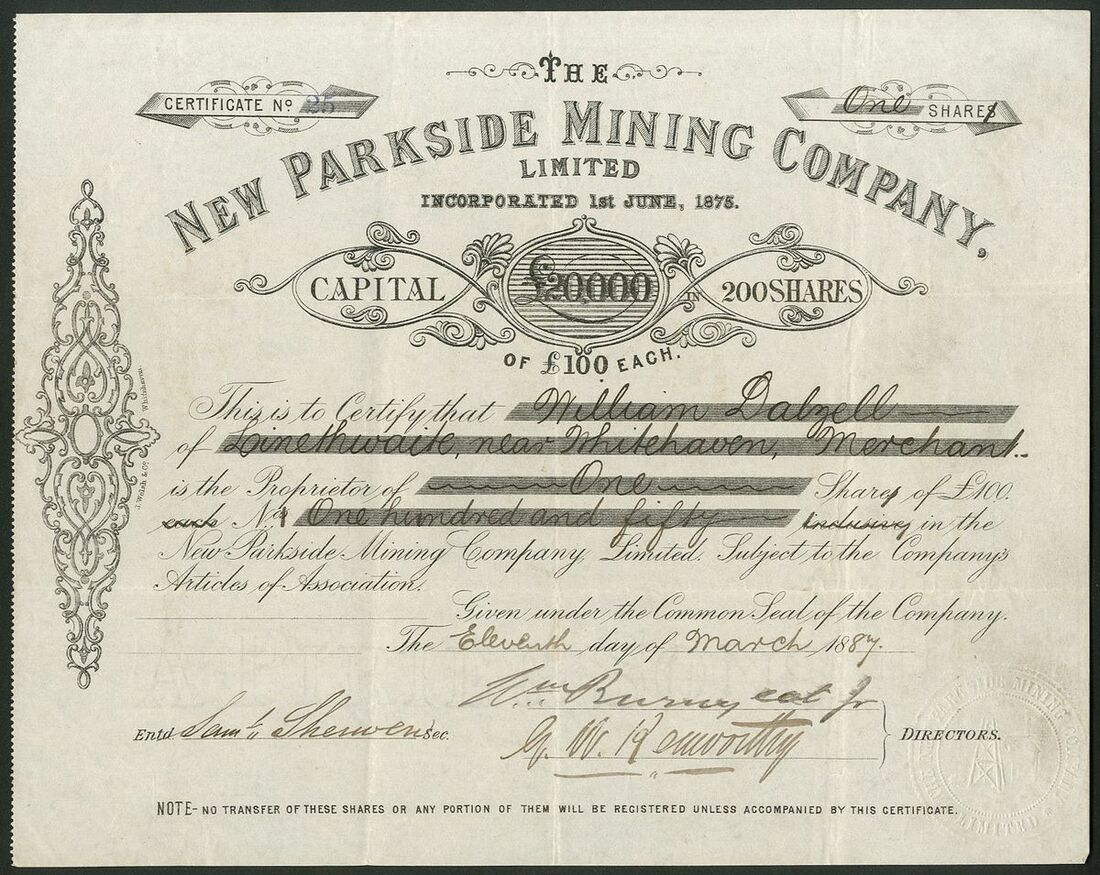 THE
CERTIFICATE No 25
One SHARES
NEW PARKSIDE MINING COMPANY,
LIMITED
INCORPORATED 1st JUNE, 1875.
CAPITAL £20,000 IN 200 SHARES
OF £100 EACH.
This is to Certify that William Dalzell
of Linethwaite, near Whitehaven, Merchant.
is the Proprietor of One Shares of £100.
each No. One hundred and fifty Inclusive, in the
New Parkside Mining Company Limited. Subject to the Company's
Articles of Association.
Given under the Common Seal of the Company.
The Eleventh day of March 1887.
Wm Burnyeat Jr
Entd. Saml. Sherwen Sec.
G. W. Kenworthy
DIRECTORS.
NOTE- NO TRANSFER OF THESE SHARES OR ANY PORTION OF THEM WILL BE REGISTERED UNLESS ACCOMPANIED BY THIS CERTIFICATE.
J. Walsh & Co. Whitehaven.
THE NEW PARKSIDE MINING COMPANY LIMITED